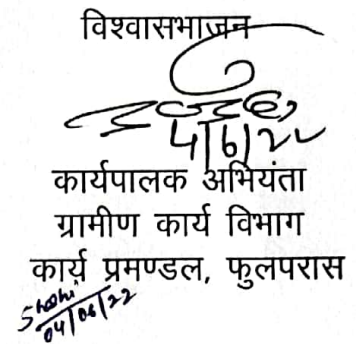 विश्वासभाजन
4/6/22
कार्यपालक अभियंता
ग्रामीण कार्य विभाग
कार्य प्रमण्डल, फुलपरास
Shashi
04/06/22